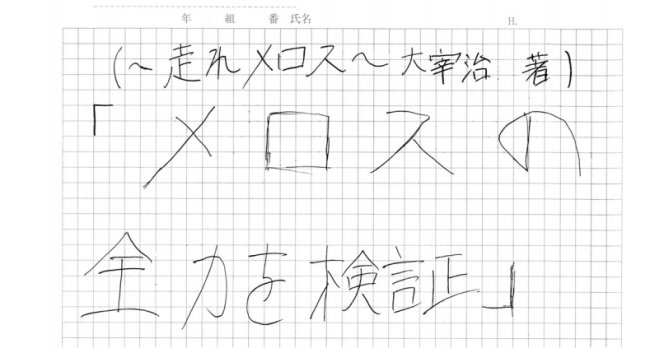 年 組 番 氏名 H.
(〜走れメロス〜 大宰治 著)
「メロスの
全力を検証」